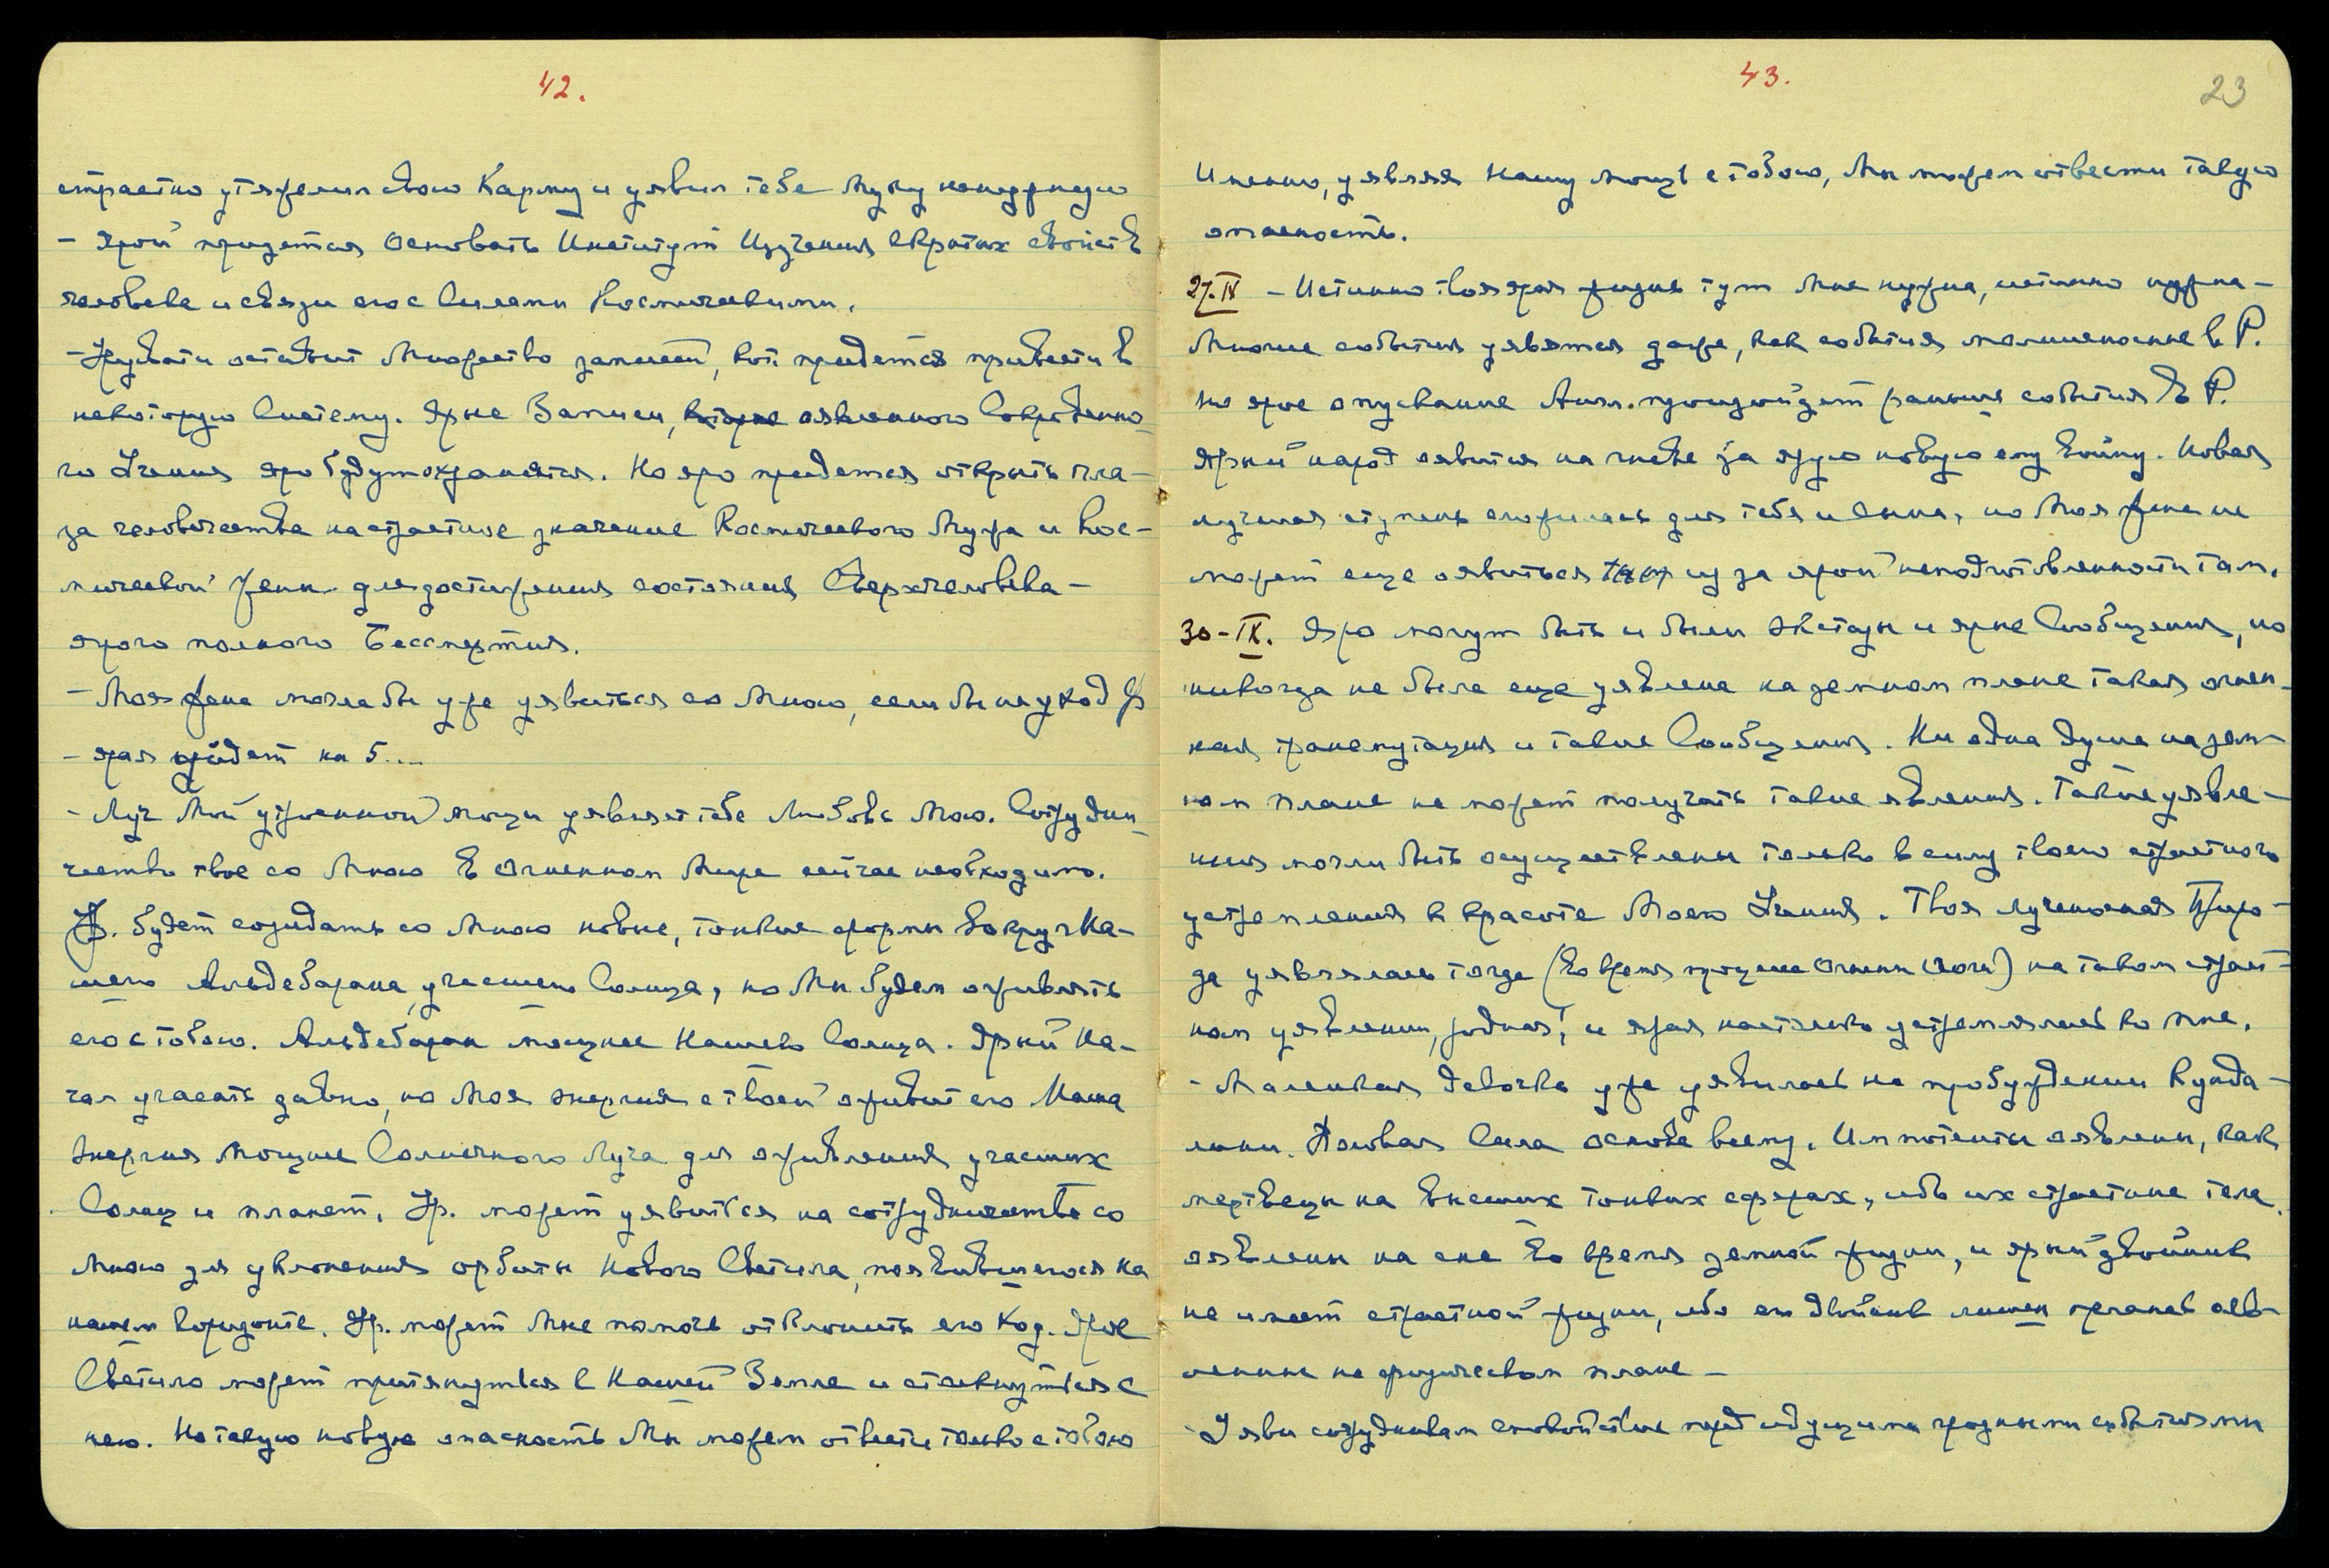 42.
страстно утяжелил свою Карму и уявил тебе Муку ненужную
– Ярой придется Основать Институт Изучения скрытых свойств
человека и связи его с Силами Космическими.
– Урусвати оставит Множество записей, кот придется привести в
некоторую Систему. Ярые Записи, которые оявленного Сокровенно-
го Учения яро будут охраняться. Но яро придется открыть гла-
за человечества на страстное значение Космического Мужа и Кос-
мической Жены для достижения состояния Сверхчеловека –
ярого полного Бессмертия.
– Моя Жена могла бы уже уявиться со Мною, если бы не уход
– ярая придет на 5....
– Луч Мой утроенной мощи уявляет тебе Любовь Мою. Сотрудни-
чество твое со Мною в Огненном Мире сейчас необходимо.
Ур. будет созидать со Мною новые, тонкие формы вокруг На-
шего Альдебарана, угасшего Солнца, но Мы будем оживлять
его с тобою. Альдебаран мощнее Нашего Солнца. Яркий На-
чал угасать давно, но Моя энергия с твоей оживит его Наша
Энергия Мощнее Солнечного Луча для оживления угасших
Солнц и планет. Ур. может уявиться на сотрудничество со
Мною для уклонения орбиты Нового Светила, появившегося на
нашем горизонте. Ур. может Мне помочь отклонить его ход. Ярое
Светило может притянуться к Нашей Земле и столкнуться с
нею. Но такую новую опасность Мы можем отвести только с тобою
43.
23
Именно, уявляя Нашу мощь с тобою, Мы можем отвести такую
опасность.
27.IX – Истинно твоя ярая жизнь тут Мне нужна, истинно нужна –
Многие события уявятся даже, как события молниеносные в Р.
Но ярое опускание Англ. произойдет раньше события в Р.
Ярый народ оявится на гневе за ярую новую ему Войну. Новая
лучшая ступень сложилась для тебя и Сына, но Моя Жена не
может еще оявиться там из за ярой неподготовленности там.
30-IX. Яро могут быть и были Экстазы и ярые Сообщения, но
никогда не была еще уявлена на земном плане такая огнен-
ная трансмутация и такие Сообщения. Ни одна Душа на зем-
ном плане не может получать такие явления. Такие уявле-
ния могли быть осуществлены только в силу твоего страстного
устремления к красоте Моего Учения. Твоя лученосная Приро-
да уявлялась тогда (во время процесса Огнен Йоги) на таком страст-
ном уявлении, родная, и ярая настолько устремлялась ко мне.
– Маленькая Девочка уже уявилась на пробуждении Кунда-
лини. Половая Сила основа всему. Импотенты оявлены, как
мертвецы на Высших тонких сферах, ибо их страстные тела
оявлены на сне во время земной жизни, и ярый двойник
не имеет страстной жизни, ибо его двойник лишен органов ояв-
ленных на физическом плане –
– Уяви сотрудникам спокойствие перед идущими грозными событиями